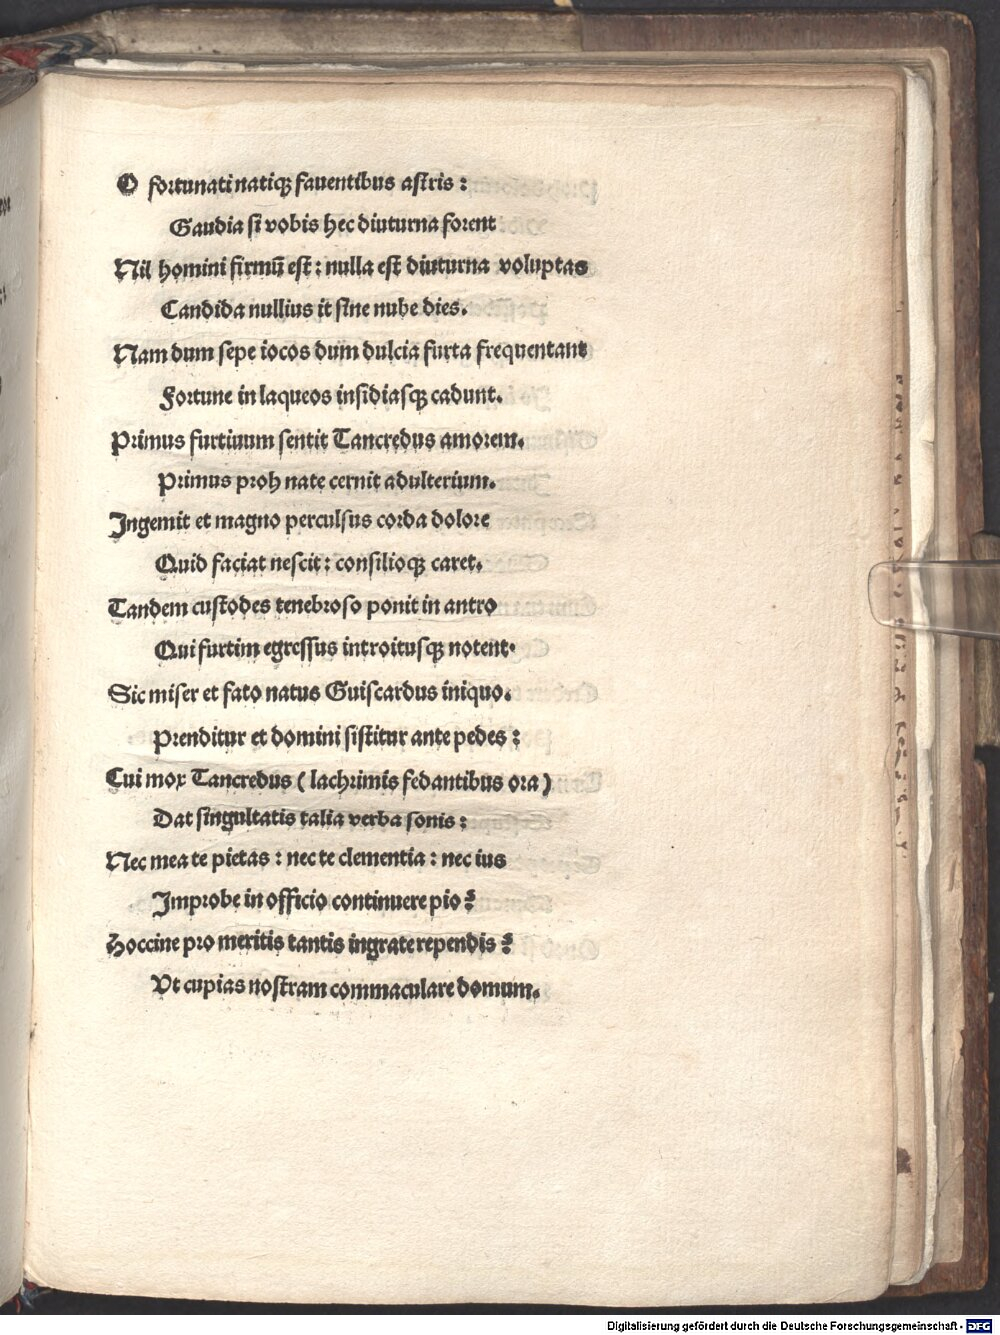 O fortunati natiqꝫ fauentibus astris :
Gaudia si vobis hec diuturna forent
Nil homini firmū est : nulla est diuturna voluptas
Candida nullius it sine nube dies.
Nam dum sepe iocos dum dulcia furta frequentant
Fortune in laqueos insidiasqꝫ cadunt.
Primus furtiuum sentit Tancredus amorem.
Primus proh nate cernit adulterium.
Ingemit et magno perculsus corda dolore
Quid faciat nescit : consilioqꝫ caret.
Tandem custodes tenebroso ponit in antro
Qui furtim egressus introitusqꝫ notent.
Sic miser et fato natus Guiscardus iniquo.
Prenditur et domini sistitur ante pedes :
Cui mox Tancredus ( lachrimis fedantibus ora )
Dat singultatis talia verba sonis :
Nec mea te pietas : nec te clementia : nec ius
Improbe in officio continuere pio ?
Hoccine pro meritis tantis ingrate rependis ?
Vt cupias nostram commaculare domum.
Digitalisierung gefördert durch die Deutsche Forschungsgemeinschaft - DFG